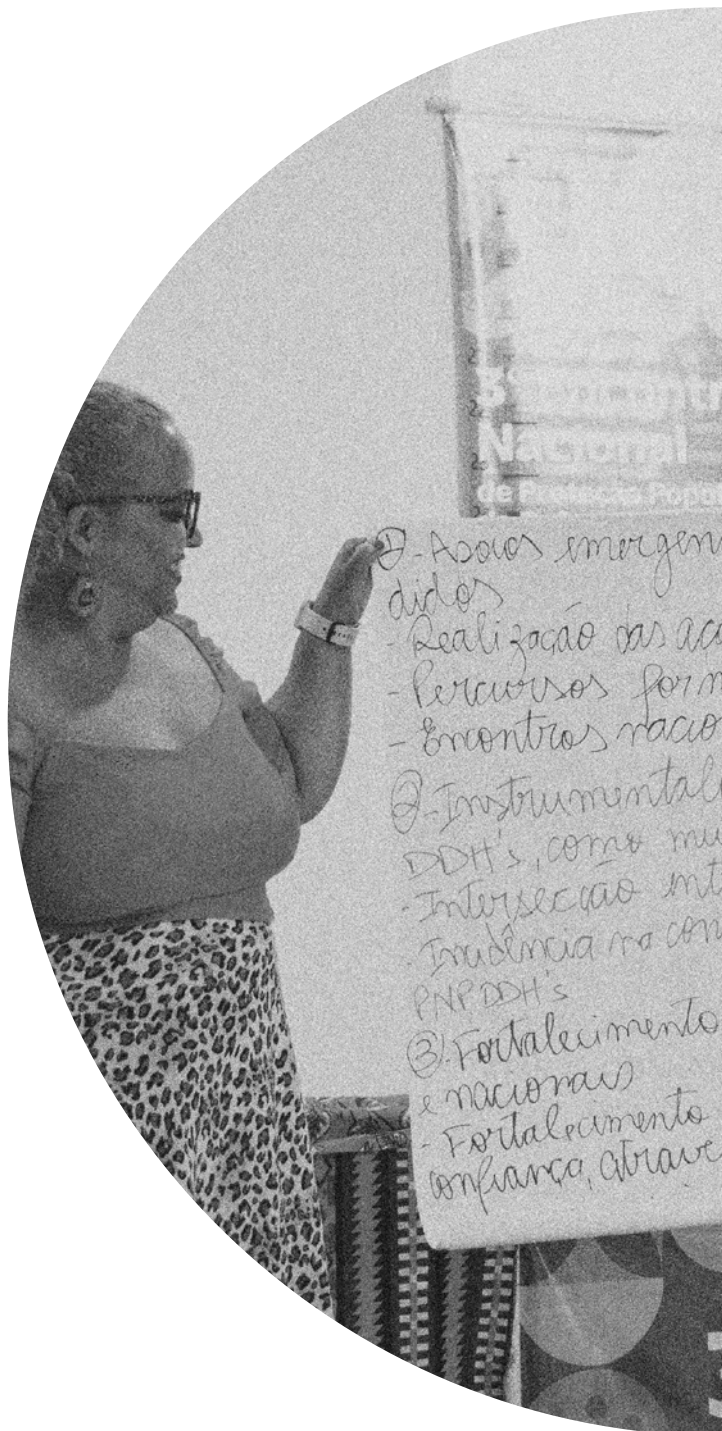 Encontr
Nacional
de Proteção Popu
① - Apoios emergen
didos
- Realização das aço
- Percursos form
- Encontros nacio
② - Instrumentali
DDH's, como mu
- Intersecção int
- Incidência na con
PNPDDH's
③ - Fortalecimento
e nacionais
- Fortalecimento
confiança, atrave